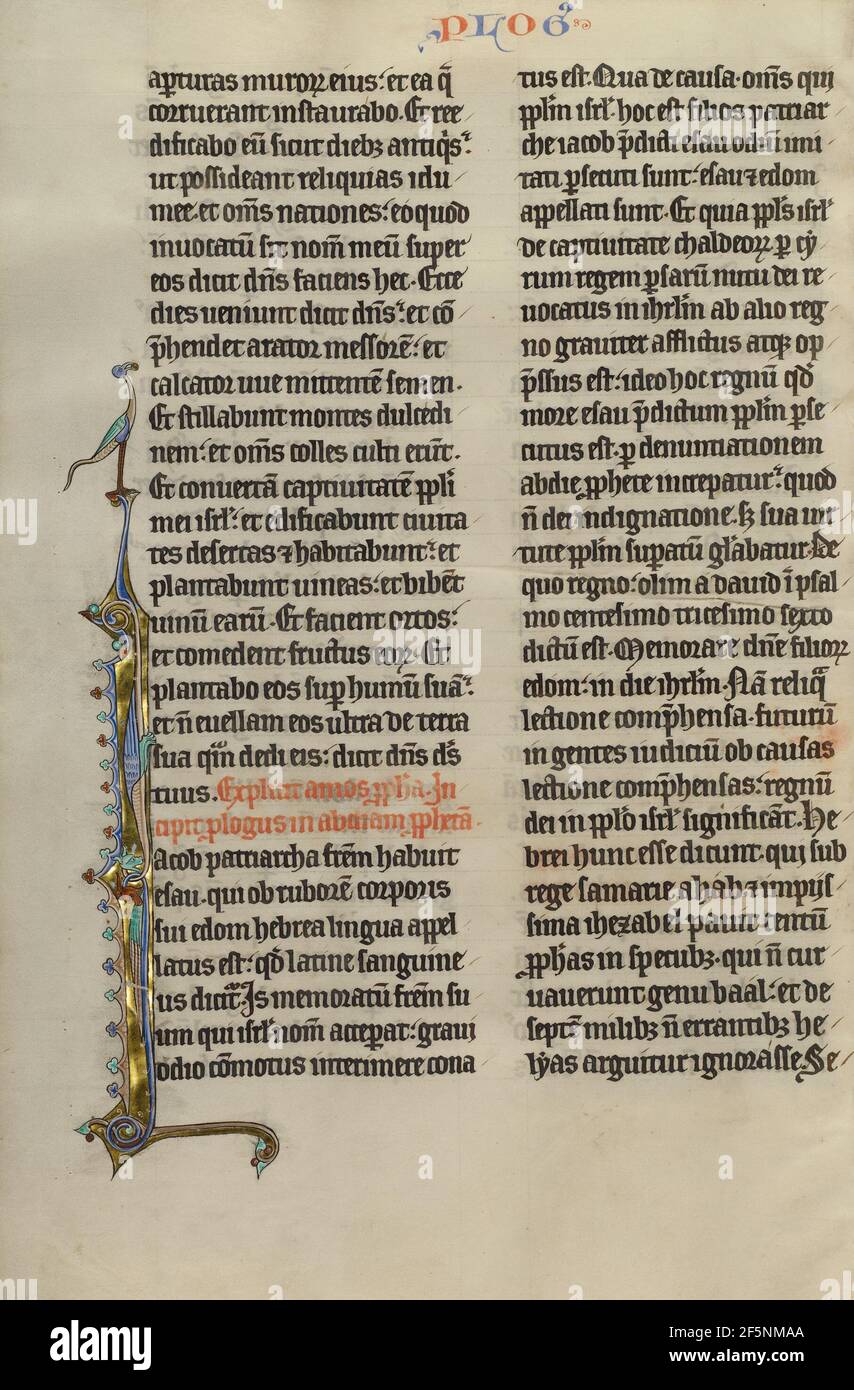 PLOG᷒
aꝑturas muroꝝ eius: et ea q̄
corruerant instaurabo. Et ree
dificabo eū sicut dieb; antiq̄s:
ut possideant reliquias idu
mee. et om̄s nationes: eo quod
inuocatū sit nom̄ meū super
eos dicit dn̄s faciens hec. Ecce
dies ueniunt dicit dn̄s: et cō
p̄hendet arator messorē: et
calcator uue mittentē semen.
Et stillabunt montes dulcedi
nem: et om̄s colles culti erūt.
Et conuertā captiuitatē ppl̄i
mei isrl̄: et edificabunt ciuita
tes desertas ⁊ habitabunt: et
plantabunt uineas: et bibēt
uinū earū. Et facient ortos:
et comedent fructus eoꝝ. Et
plantabo eos suꝑ humū suā:
et n̄ euellam eos ultra de terra
sua qm̄ dedi eis: dicit dn̄s ds̄
tuus. Explicit amos ꝓph̄a. In
cipit ꝓlogus in abdiam ꝓphetā.
Iacob patriarcha frēm habuit
esau. qui ob ruborē corporis
sui edom hebrea lingua appel
latus est: qd̄ latine sanguine
us dicit̄. Is memoratū frēm su
um qui isrl̄ nom̄ acceperat: graui
odio cōmotus interimere cona
tus est. Qua de causa. om̄s qui
ppl̄m isrl̄. hoc est filios patriar
che iacob p̄dicti esau odiū imi
tati ꝑsecuti sunt: esau ⁊ edom
appellati sunt. Et quia ppl̄s isrl̄
de captiuitate chaldeoꝝ ꝑ cy
rum regem ꝑsarū nutu dei re
uocatus in ihrl̄m ab alio reg
no grauiter afflictus atq; op
p̄ssus est: ideo hoc regnū qd̄
more esau p̄dictum ppl̄m ꝑse
cutus est. ꝑ denuntiationem
abdie ꝓphete increpatur: quod
n̄ dei indignatione. s; sua uir
tute ppl̄m suꝑatū gl̄abatur. De
quo regno: olim a dauid ī psal
mo centesimo tricesimo sexto
dictū est. Memorare dn̄e filioꝝ
edom: in die ihrl̄m. Nā reliq̄
lectione comp̄hensa. futurū
in gentes iudiciū ob causas
lectione comp̄hensas: regnū
dei in ppl̄o isrl̄ significāt. He
brei hunc esse dicunt. qui sub
rege samarie ahab ⁊ impiis
sima ihezabel pauit centū
ꝓph̄as in specub;. qui n̄ cur
uauerunt genu baal: et de
septē milib; n̄ errantib; he
lyas arguitur ignorasse. Se
alamy
a
Image ID: 2F5NMAA
www.alamy.com